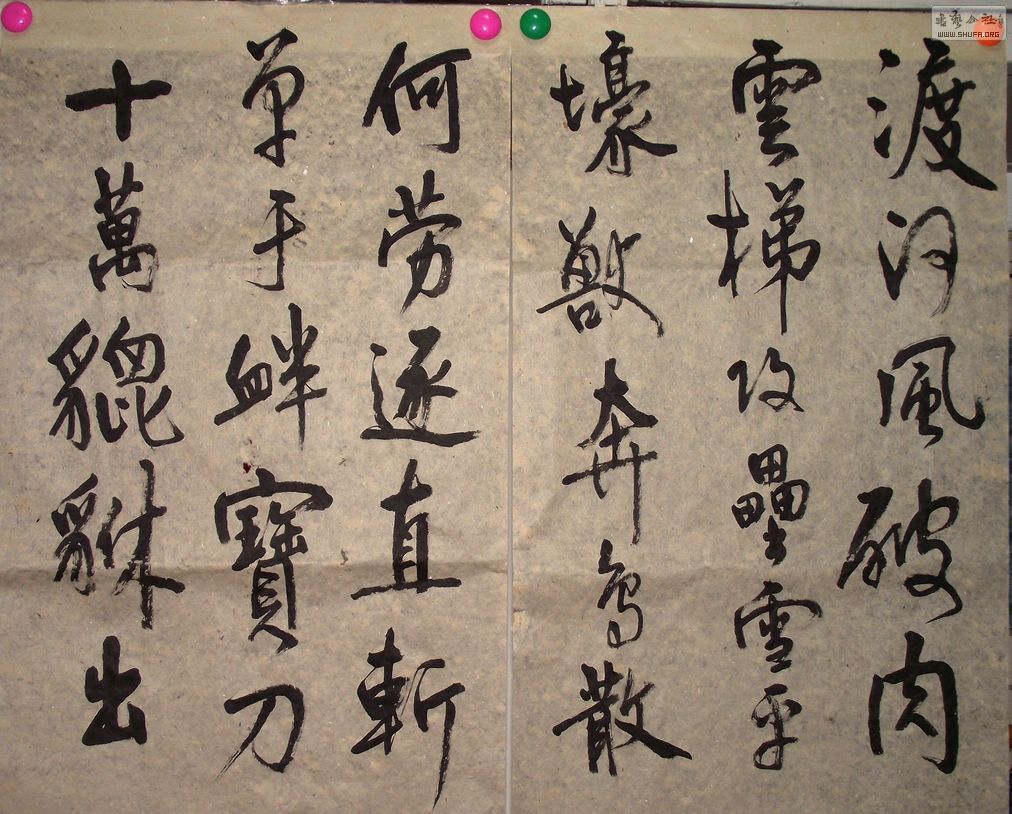 渡河風破肉
雲梯攻壘雪平
壕獸奔鳥散
何勞逐直斬
單于衅寶刀
十萬貔貅出
書藝公社
WWW.SHUFA.ORG